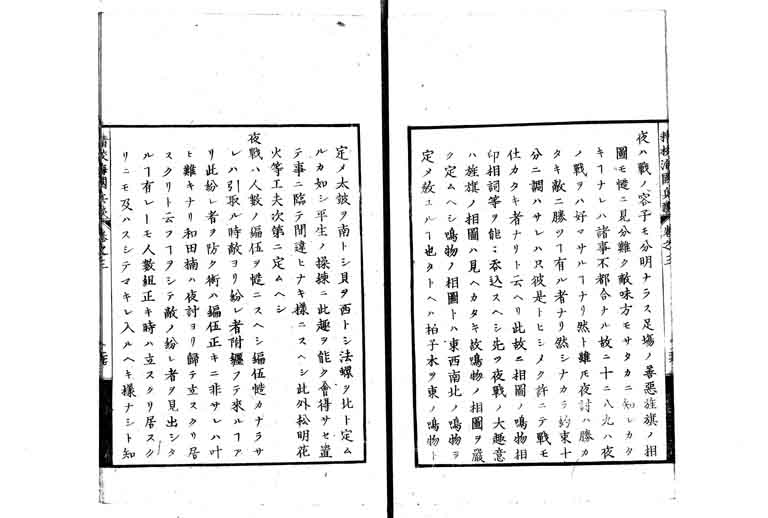 夜ハ戦ノ容子モ分明ナラス足場ノ善惡旌旗ノ相
圖モ慥ニ見分難ク敵味方モサタカニ知レカタ
キヿナレハ諸事不都合ナル故ニ十ニ八九ハ夜
ノ戦ヲハ好マサルヿナリ然ト雖モ夜討ハ勝カ
タキ敵ニ勝ツヿ有ル者ナリ然シナカラ約束十
分ニ調ハサレハ只彼是トヒシメク許ニテ戦モ
仕カタキ者ナリト云ヘリ此故ニ相圖ノ鳴物相
印相詞等ヲ能々呑込スヘシ先ツ夜戦ノ大趣意
ハ旌旗ノ相圖ハ見ヘカタキ故鳴物ノ相圖ヲ嚴
ク定ムヘシ鳴物ノ相圖トハ東西南北ノ鳴物ヲ
定メ教ユルヿ也タトヘハ拍子木ヲ東ノ鳴物ト
定メ太皷ヲ南トシ貝ヲ西トシ法螺ヲ北ト定ム
ルカ如シ平生ノ操練ニ此趣ヲ能ク會得サセ置
テ事ニ臨テ間違ヒナキ樣ニスヘシ此外松明花
火等工夫次第ニ定ムヘシ
夜戦ハ人數ノ編伍ヲ慥ニスヘシ編伍慥カナラサ
レハ引取ル時敵ヨリ紛レ者附纒フテ來ルヿア
リ此紛レ者ヲ防ク術ハ編伍正キニ非サレハ叶
ヒ難キナリ和田楠ハ夜討ヨリ歸テ立スクリ居
スクリト云フヿヲシテ敵ノ紛レ者ヲ見出シタ
ルヿ有レトモ人數組正キ時ハ立スクリ居スク
リニモ及ハスシテマキレ入ルヘキ樣ナシト知